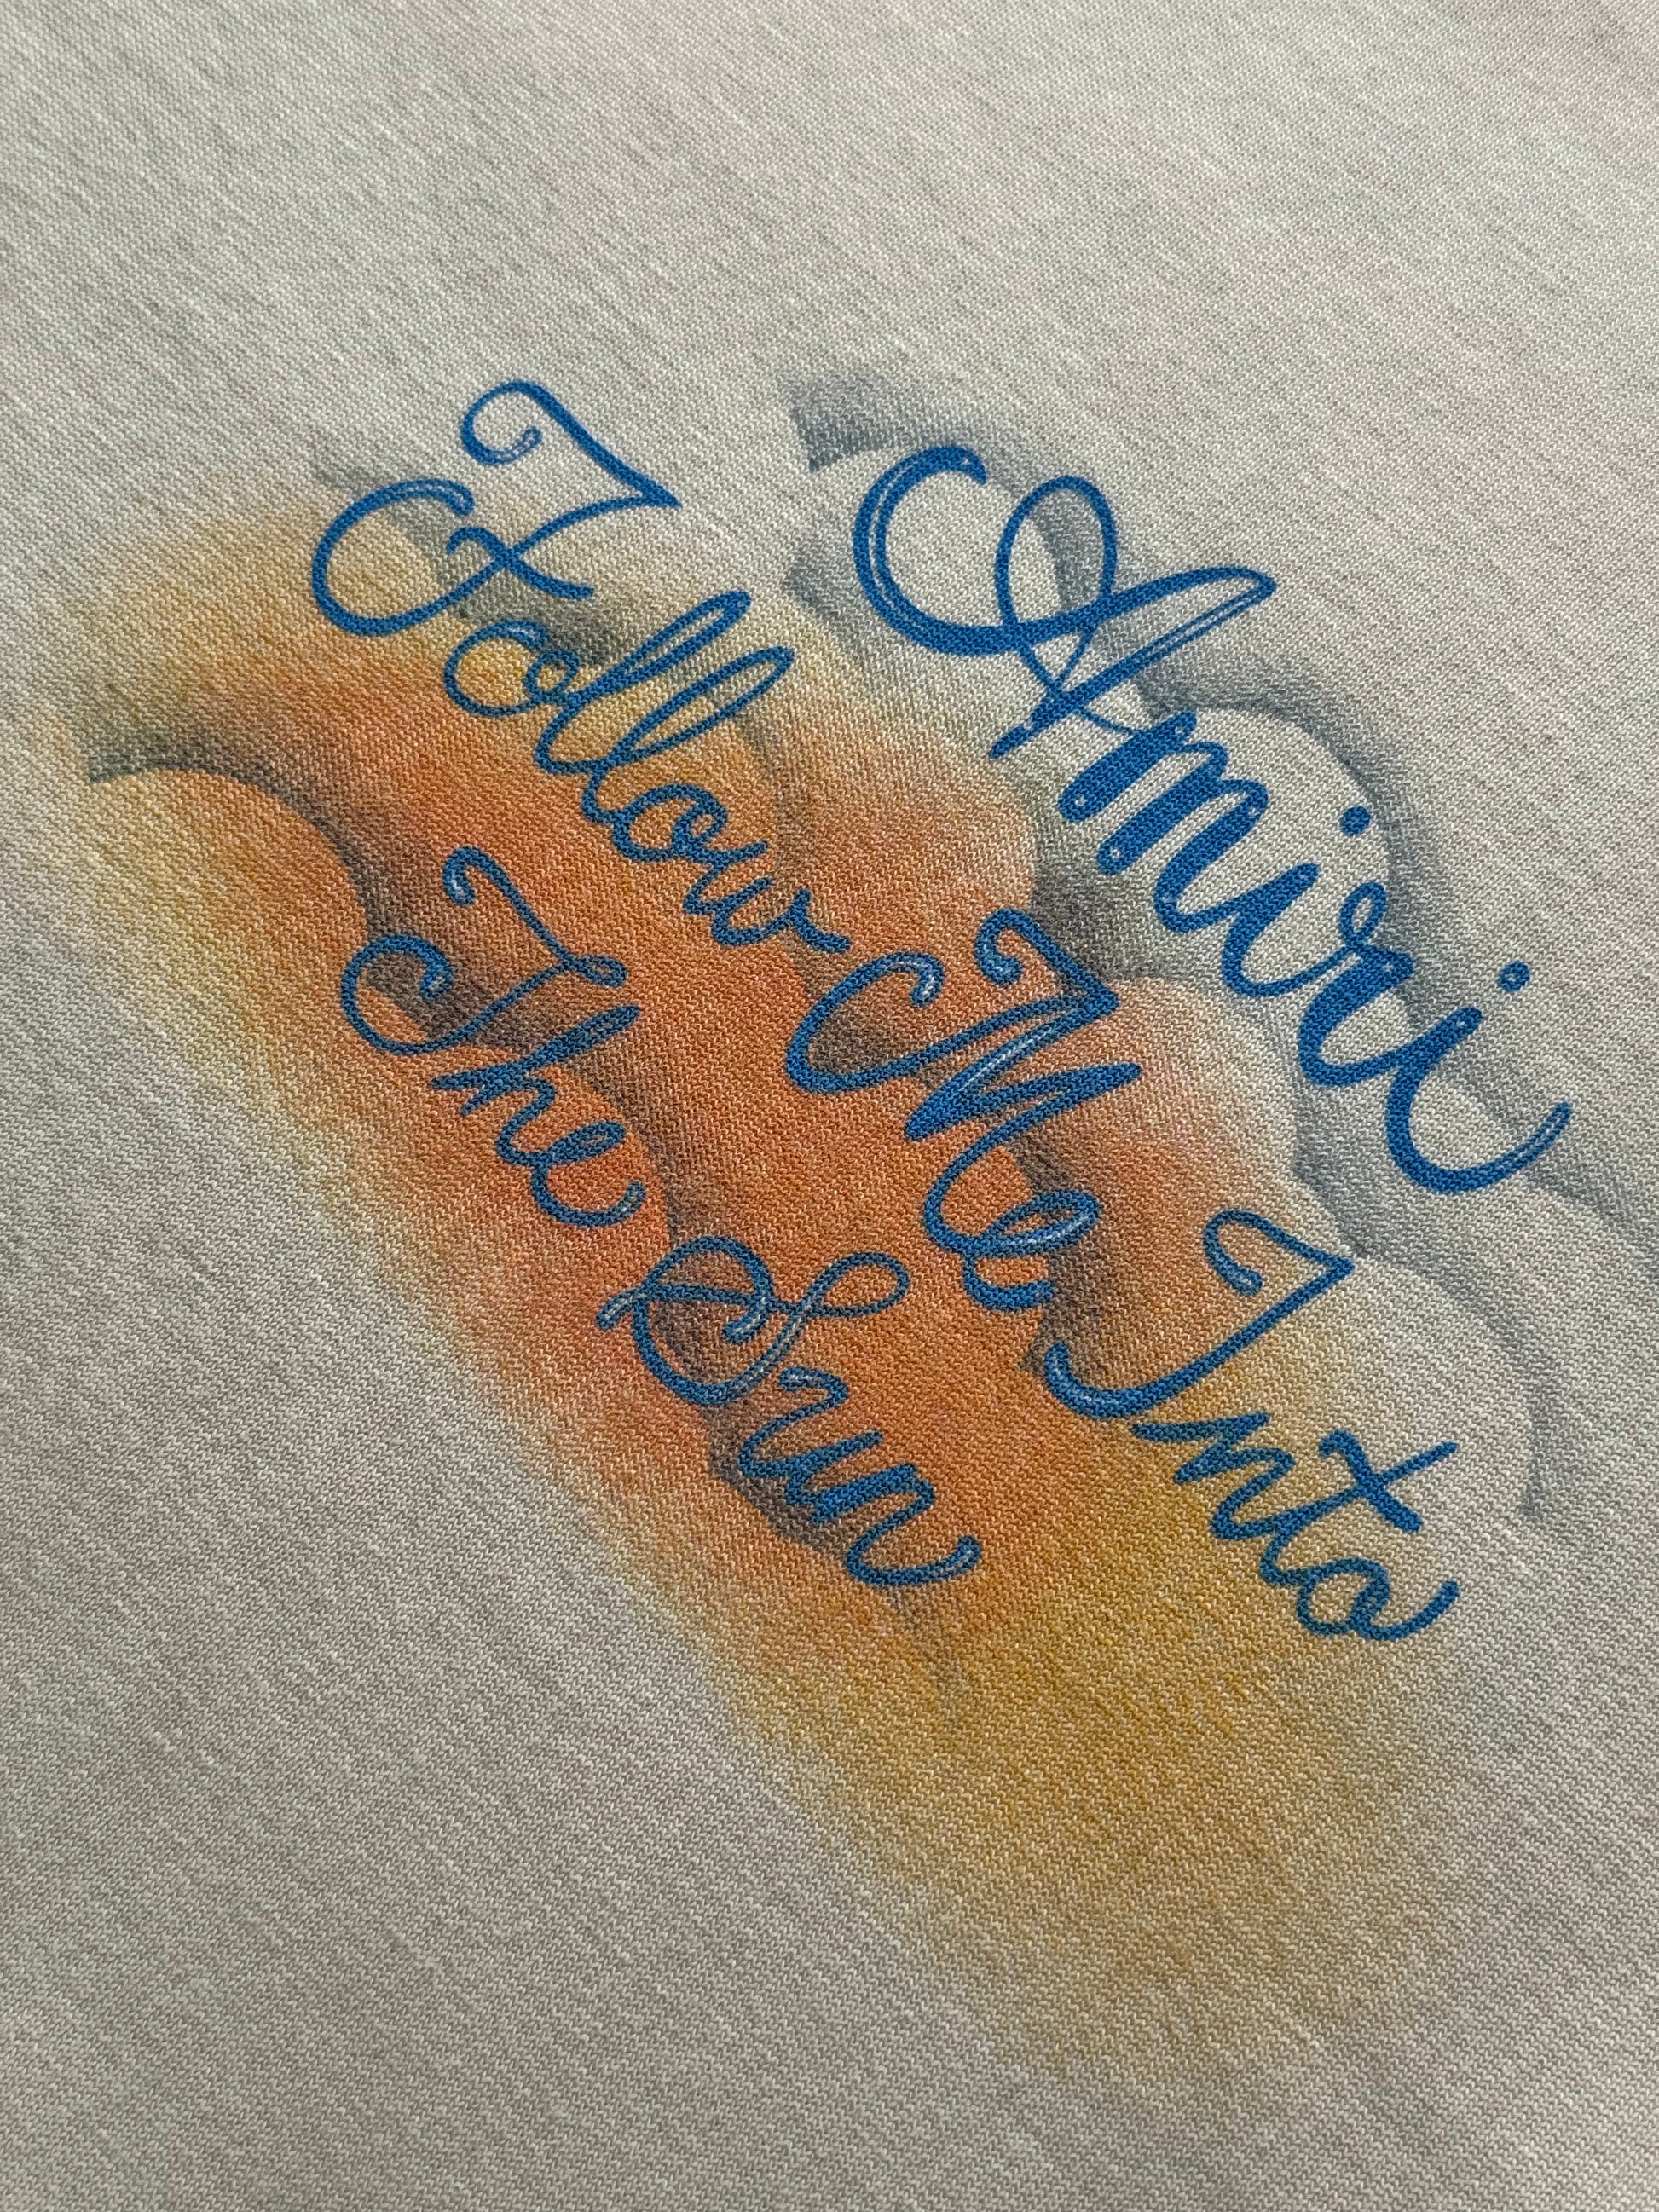 Amiri
Follow Me Into
The Sun